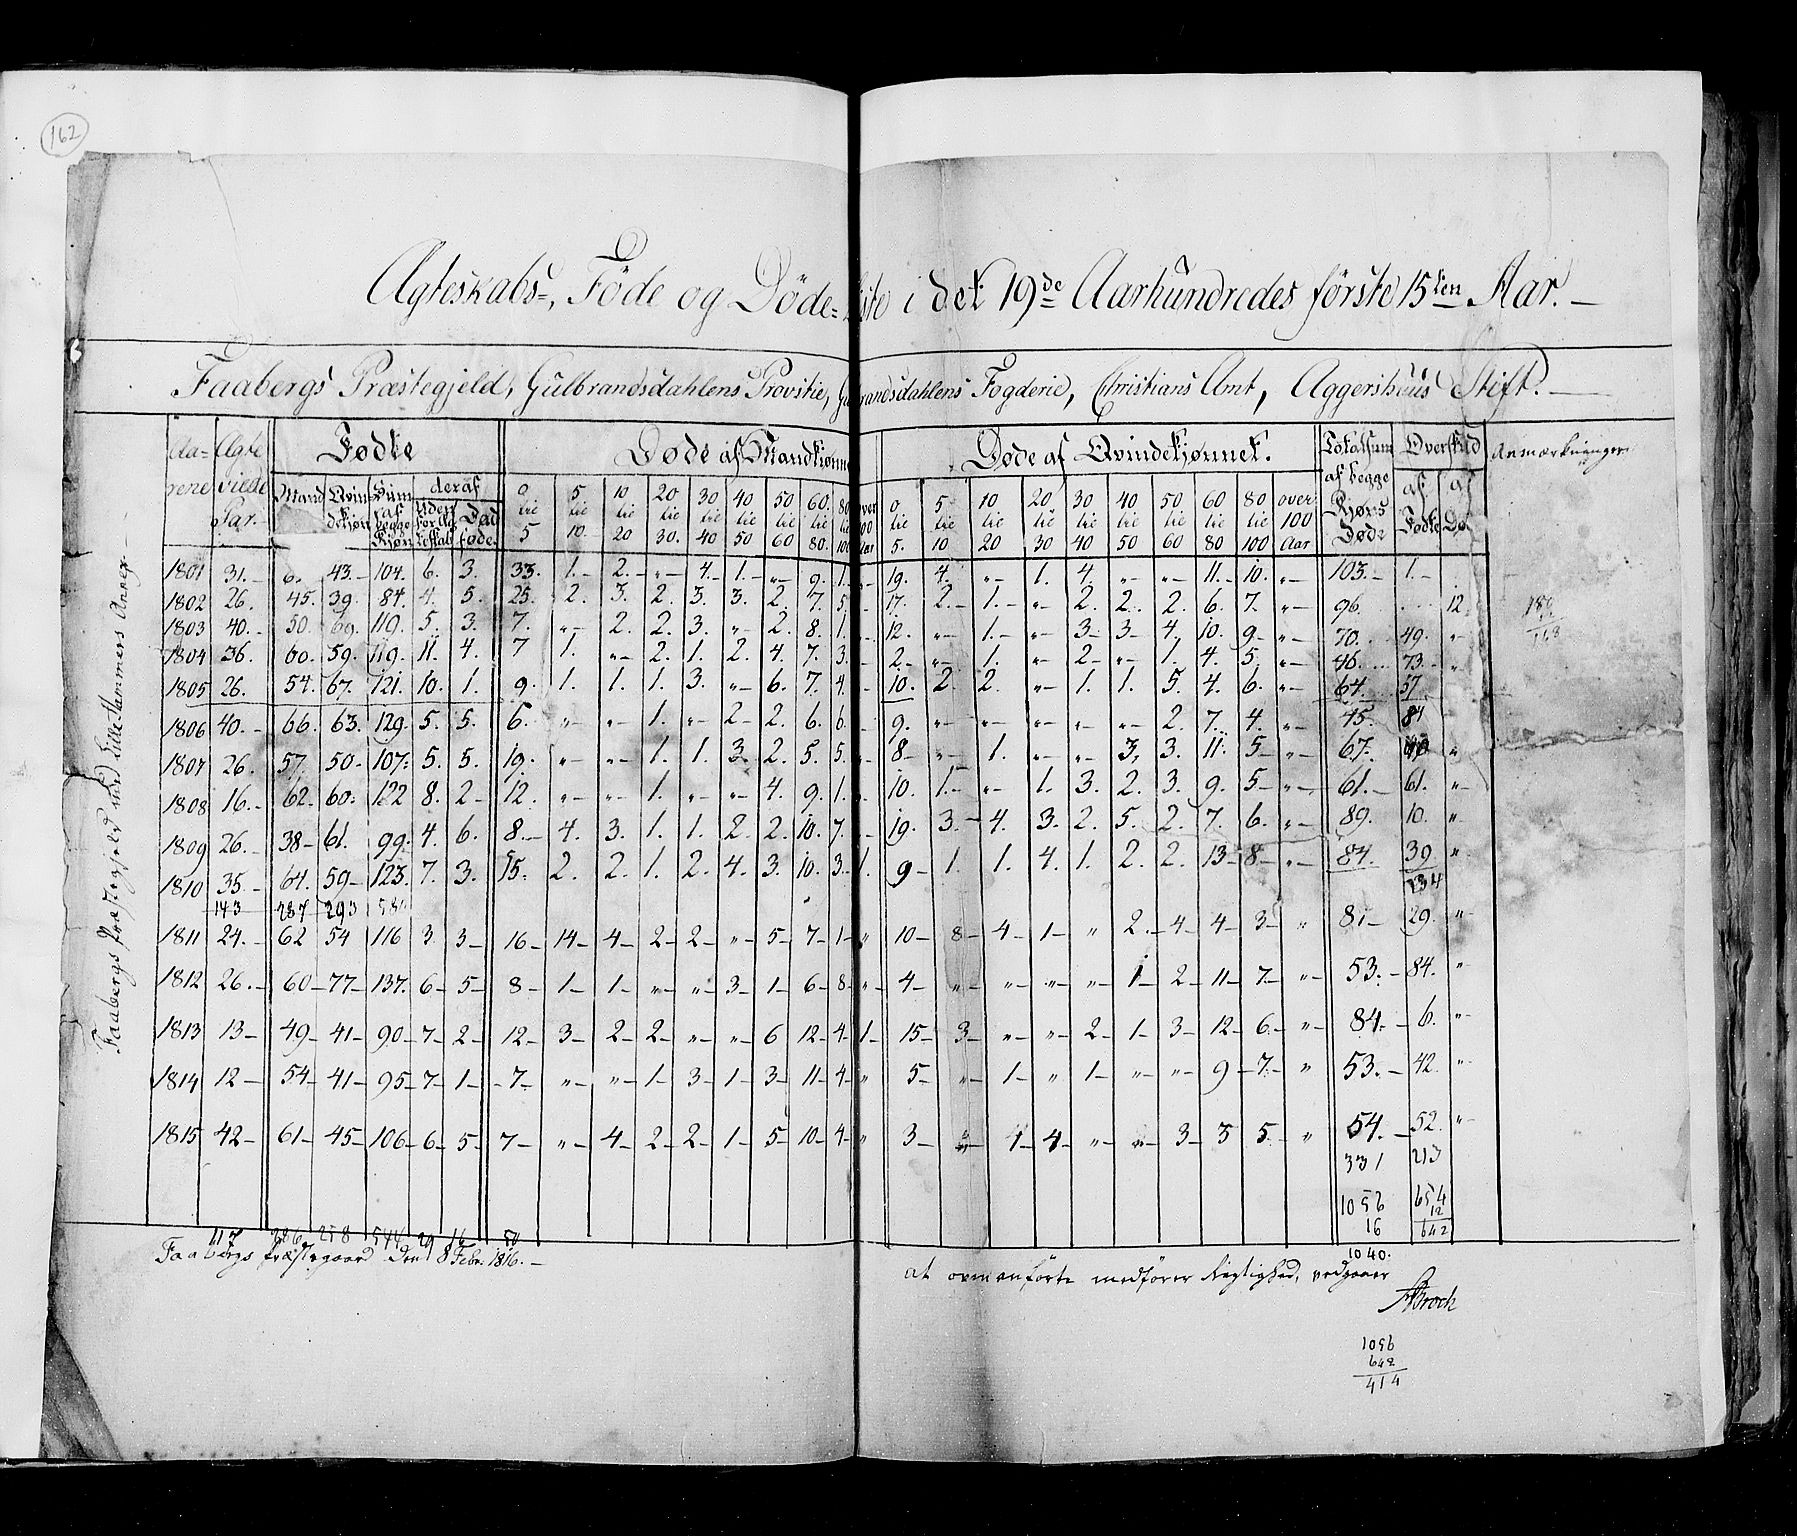 162
Ægteskabs-, Føde og Døde-Liste i det 19de Aarhundredes første 15ten Aar.
Faabergs Præstegjeld, Gulbrandsdahlens Provstie, Gulbrandsdahlens Fogderie, Christians Amt, Aggershuus Stift.
Faabergs Præstegjeld med Lille-Hammers Annex
Aarene Ægteviede Par. Fødte Døde af Mandkjønnet Døde af Qvindekjønnet. Totalsum af begge Kjøns Døde Overskud Anmærkninger
Mand Qvindekjøn Sum af begge Kjøn deraf
uden for Ægteskab Dødfødte
0 tic 5 5. tic 10. 10. tic 20 20 tic 30. 30 tic 40 40 tic 50 50 tic 60 60. tic 80. 80 tic 100 over 100 Aar 0. tic 5. 5 tic 10 10 tic 20 20 tic 30 30 tic 40 40 tic 50 50 tic 60 60 tic 80 80 tic 100 over 100 Aar af Fødte af Dø
1801 31. 6. 43. 104. 6. 3. 33. 1. 2. „ 4. 1. „ 9. 1. „ 19. 4. „ 1. 4. „ „ 11. 10. „ 103. 1.
1802 26. 45. 39. 84. 4. 5. 25. 2. 3. 2. 3. 3. 2. 7. 5. 17. 2. 1. „ 2. 2. 2. 6. 7. „ 96. 12
1803 40. 50. 69. 119. 5. 3. 7. „ 2. 2. 3. „ 2. 8. 1. 12. „ 1. „ 3 3 4. 10. 9 „ 70. 49. „
1804 36. 60. 59. 119. 11. 4. 7 1. „ 2. 1. 2. 4. 7. 3. 2. „ 1. „ 2 „ 1. 4. 5. „ 46. 73. „
1805 26. 54. 67. 121. 10. 1. 9. 1. 1. 1. 3. „ 6. 7. 4. 10. 2. 2. „ 1. 1. 5. 4. 6. „ 64. 57
1806 40. 66. 63. 129. 5. 5. 6. „ „ 1. „ 2 2. 6. 6. 9. „ „ „ „ „ 2. 7. 4. „ 45. 84
1807 26. 57. 50. 107. 5. 5. 19. „ „ 1. 1. 3. 2. 5. 5. 8 „ 1. „ „ 3. 3. 11. 5 „ 67. 40 „
1808 16. 62. 60. 122 8. 2 12. „ „ 1. „ „ 4. 9. 1. 10. 1. „ 1. 3. 2. 3. 9. 5 „ 61. 61. „
1809 26. 38 61. 99. 4. 6. 8. 4. 3. 1. 1. 2. 2. 10. 7. 19. 3. 4. 3. 2. 5. 2. 7. 6. „ 89. 10. „
1810 35. 64. 59 123. 7. 3. 15. 2. 2. 1. 2. 4. 3. 10. 3. 1. 9 1. 1. 4. 1. 2. 2. 13 8 „ 84. 39 „
143 287 293 234
1811 24. 62 54 116 3. 3 16 14 4 2 2 „ 5 7 1 „ 10 8 4 1 „ 2. 4 4 3 „ 81 29. „
1812 26. 60 77 137. 6 5 8 1 1 „ „ 3 1 6 8 „ 4 „ „ „ „ 1 2 11 7. „ 53. 84. „
1813 13 49 41 90 7 2 12 3 2 2 „ „ 6 12 4 1 15 3 „ „ 2 1 3 12 6. „ 84. 6. „
1814 12 54 41 95 7 1 7 „ „ 1 3 1 3 11 4 „ 5 „ 1 „ 1 „ „ 9 7. „ 53. 42. „
1815 42 61 45 106 6 5 7 „ 4 2 2 1 5 10 4 „ 3 „ 1 4 „ „ 3 3 5. „ 54. 52. „
331 213
1056 654
16 12
642
117 286 258 544 29 16 50
1040.
Faabergs Præstegaard den 8 Febr. 1816.
at ovenanførte medfører Rigtighed, vedgaaer
Broch
1056
642
414